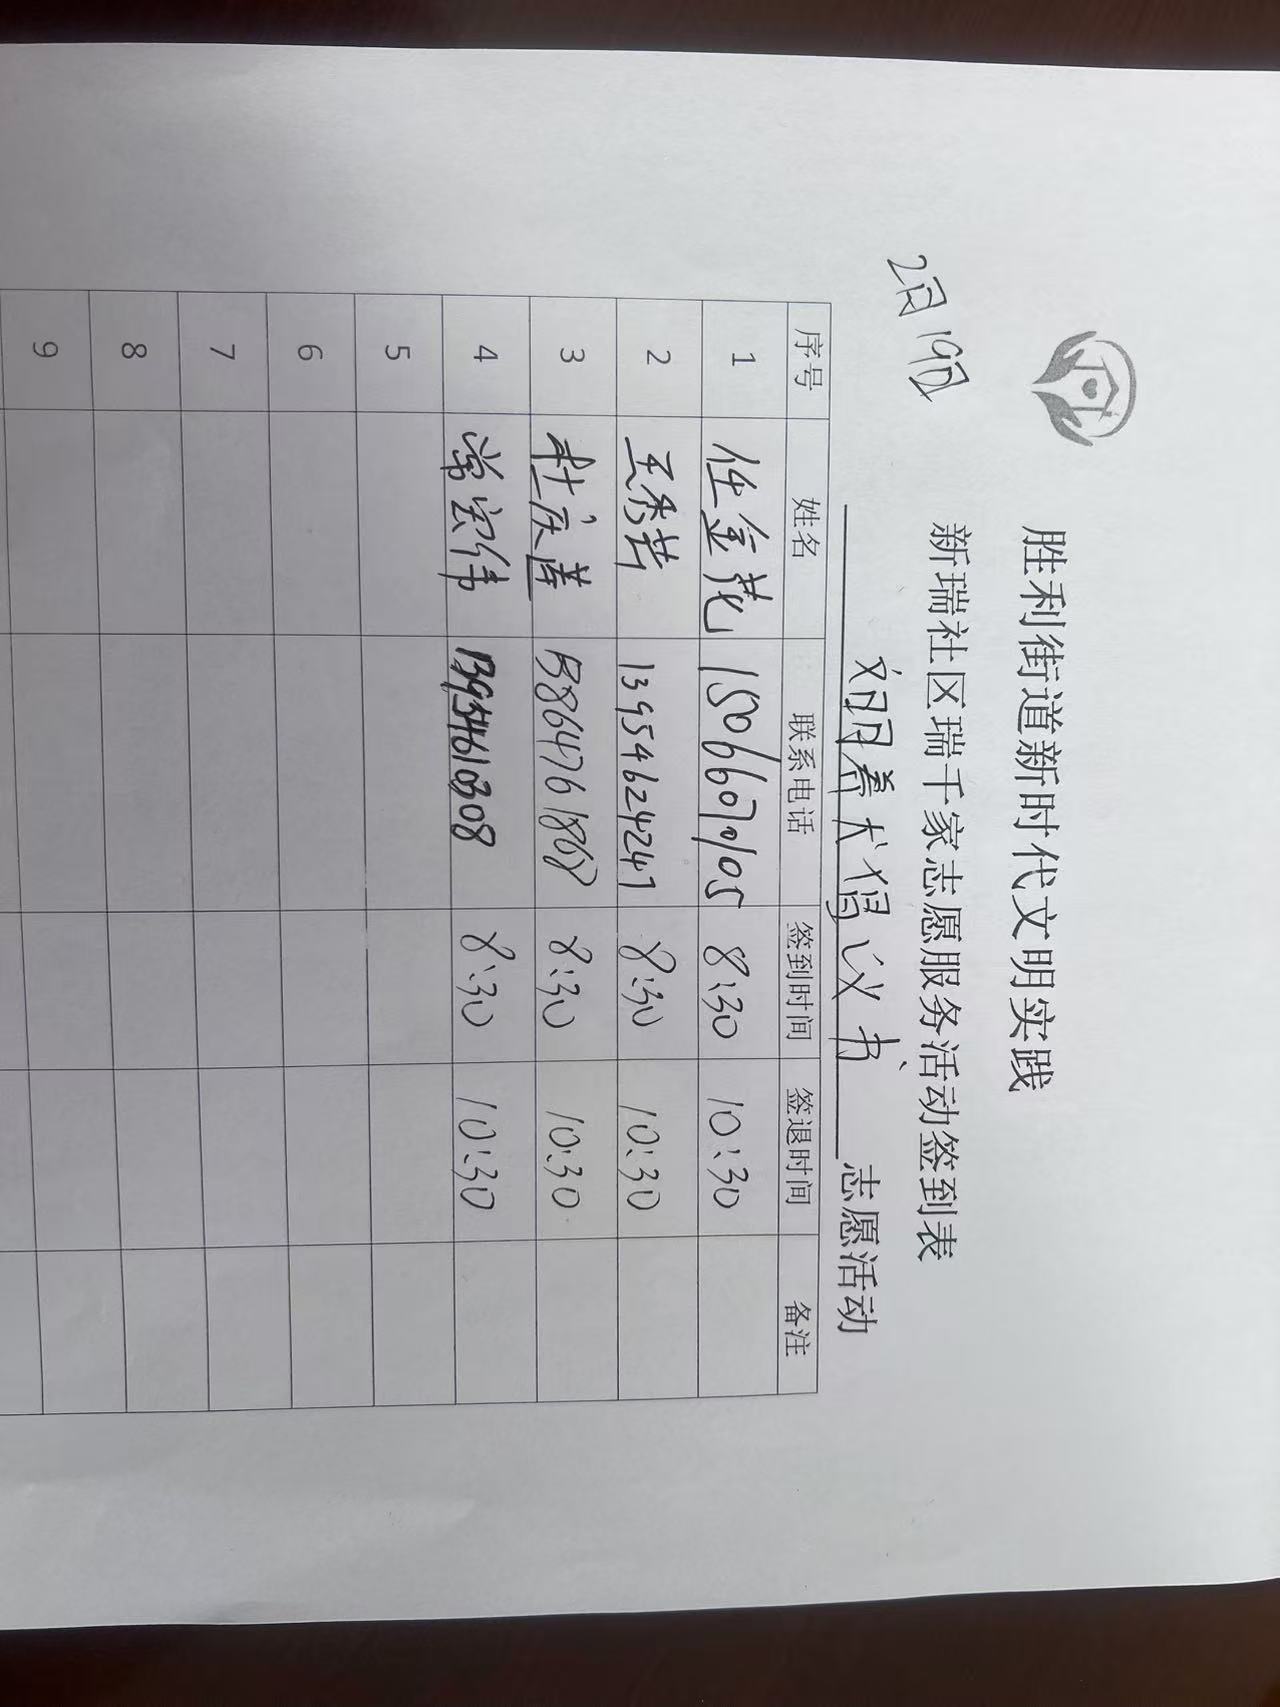 胜利街道新时代文明实践
新瑞社区瑞千家志愿服务活动签到表
2月19日
文明养犬倡议书 志愿活动
序号 姓名 联系电话 签到时间 签退时间 备注
1 任金花 15066070105 8:30 10:30
2 王秀芸 13954624247 8:30 10:30
3 杜庆莲 13864761868 8:30 10:30
4 常宏伟 13954610308 8:30 10:30
5
6
7
8
9